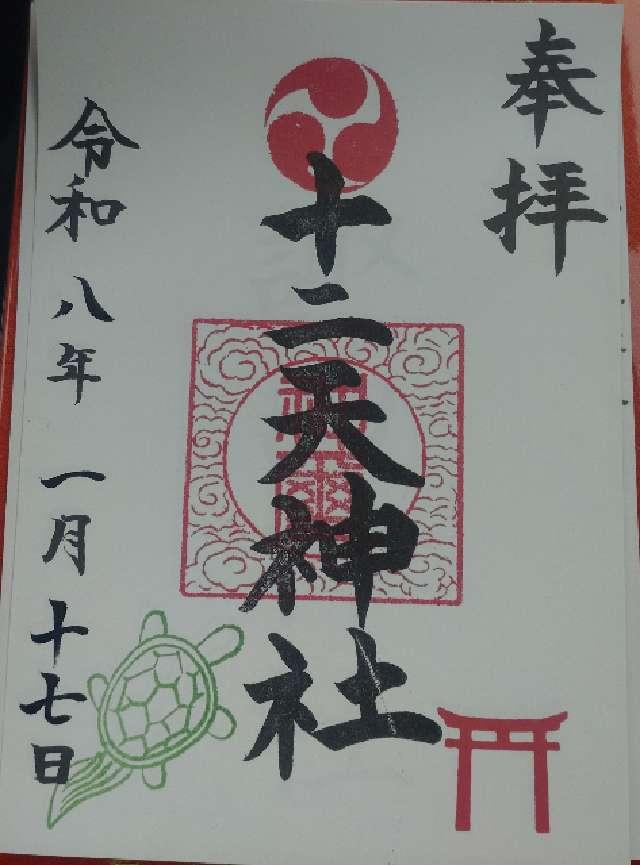 奉拝
十二天神社
神璽
令和八年一月十七日